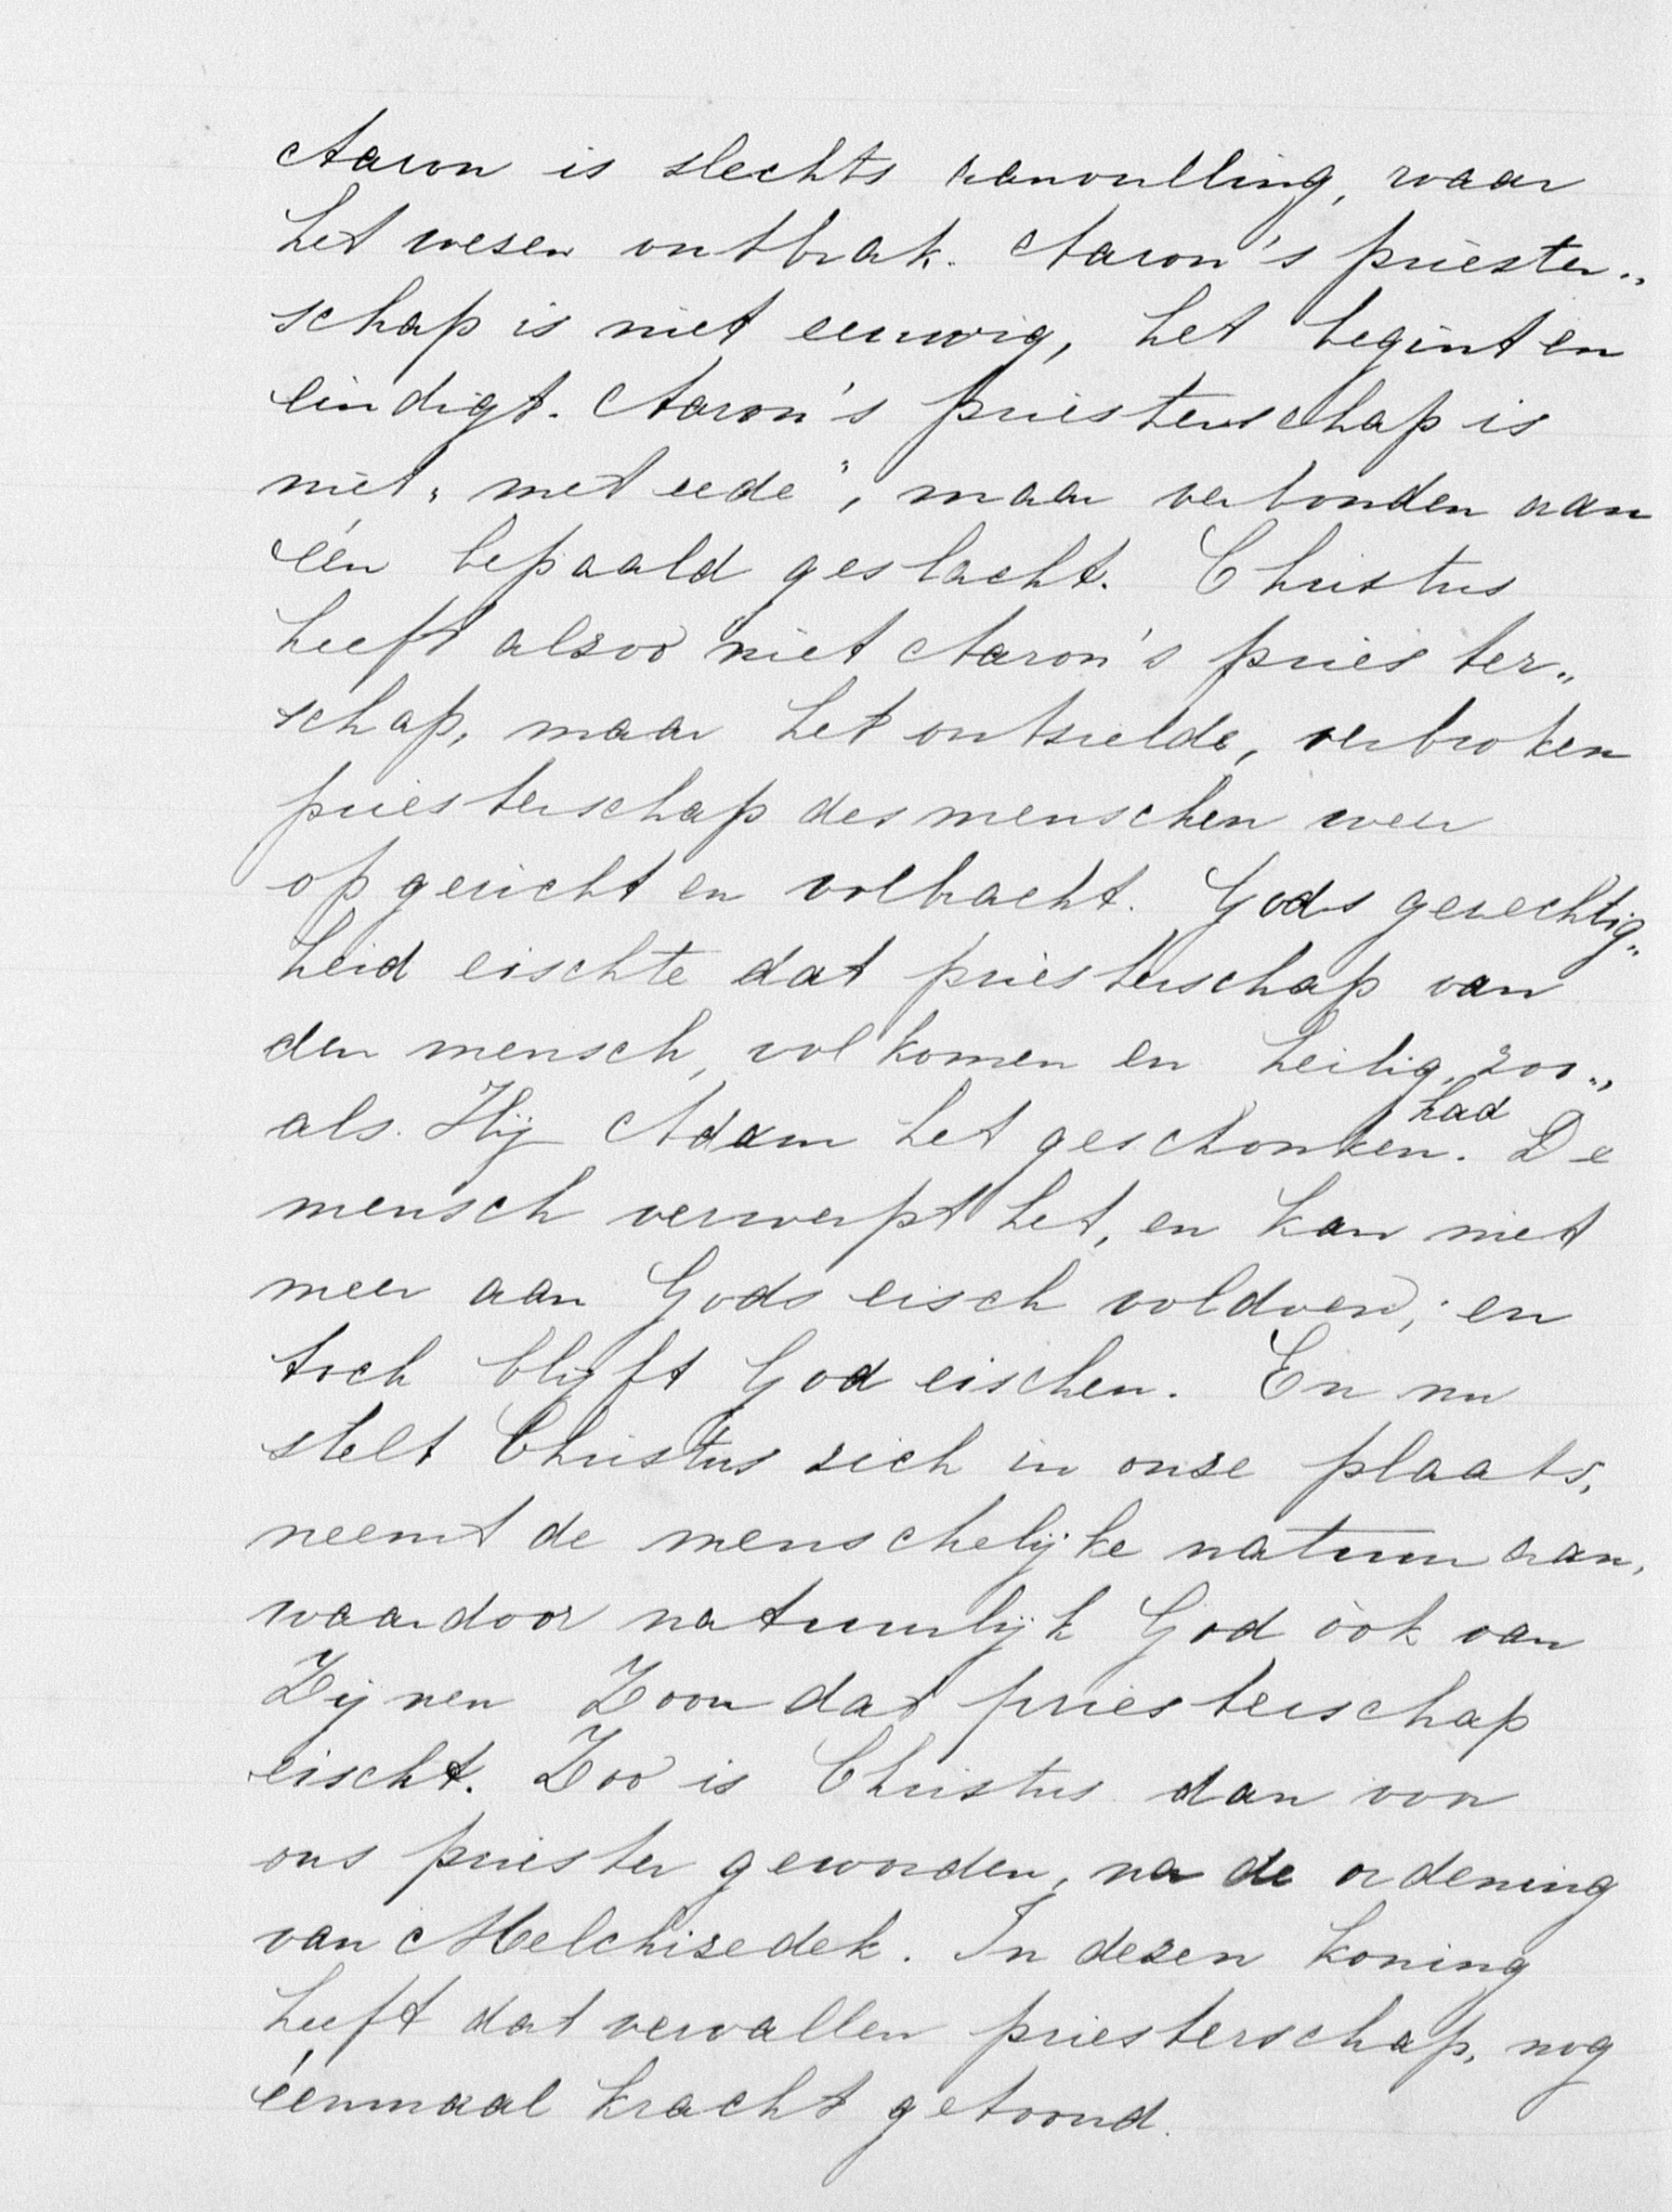 Aaron is slechts aanvulling, waar
het wezen ontbrak. Aaron's priester„
schap is niet eeuwig, het begint en
eindigt. Aaron's priesterschap is
niet „met eede", maar verbonden aan
één bepaald geslacht. Christus
heeft alzoo niet Aaron's priester„
schap, maar het ontzielde, verbroken
priesterschap des menschen weer
opgericht en volbracht. Gods gerechtig„
heid eischte dat priesterschap van
den mensch, volkomen en heilig, zoo„
als Hij Adam het geschonken had. De
mensch verwerpt het, en kan niet
meer aan Gods eisch voldoen; en
toch blijft God eischen. En nu
stelt Christus zich in onze plaats,
neemt de menschelijke natuur aan,
waardoor natuurlijk God òok van
Zijnen Zoon dat priesterschap
eischt. Zoo is Christus dan voor
ons priester geworden, na de ordening
van Melchizedek. In dezen koning
heeft dat vervallen priesterschap, nog
éénmaal kracht getoond.